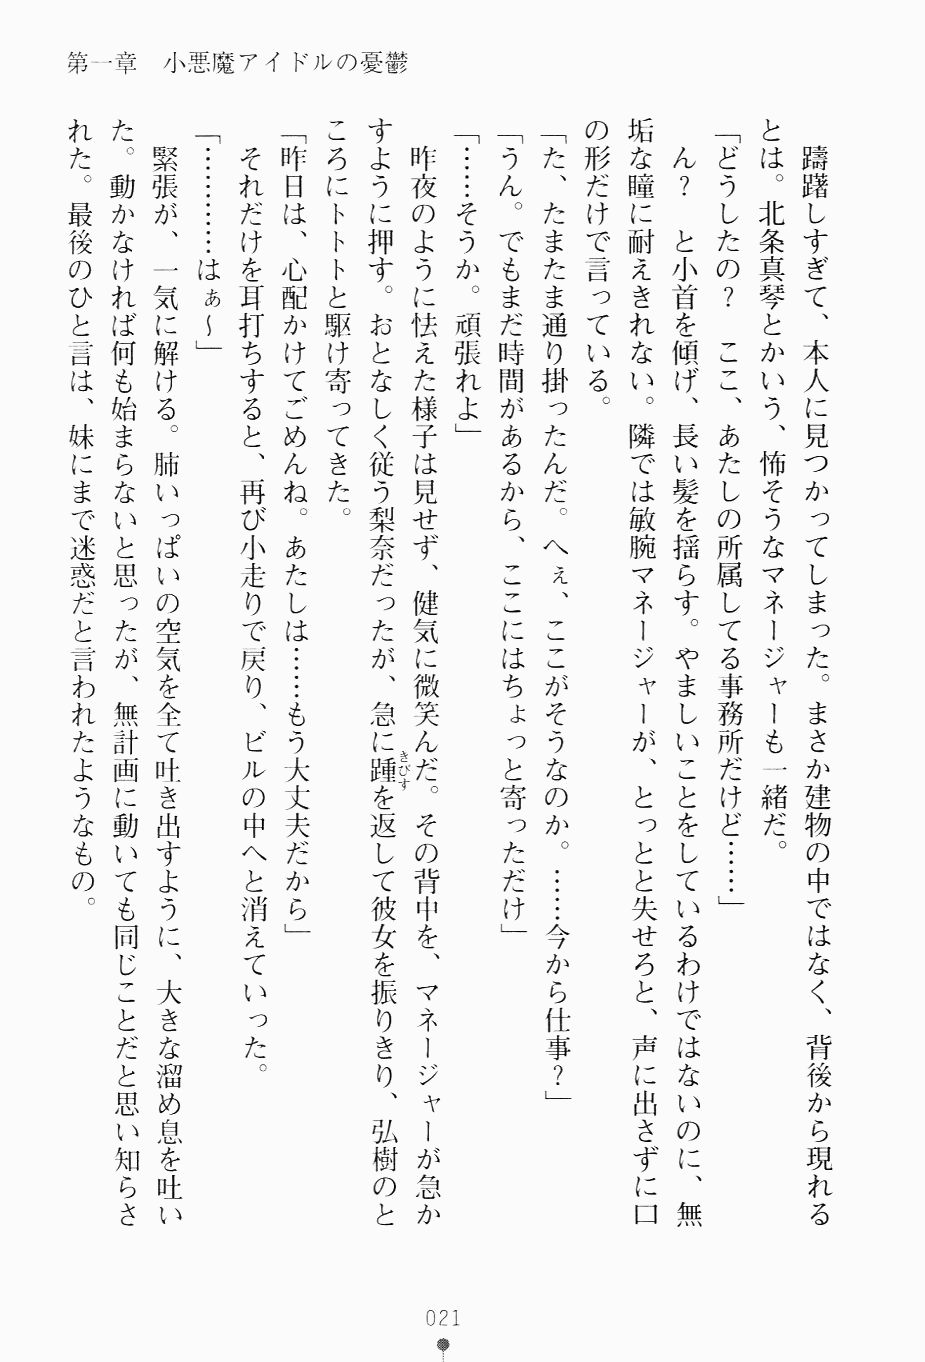 第一章　小悪魔アイドルの憂鬱
　躊躇しすぎて、本人に見つかってしまった。まさか建物の中ではなく、背後から現れる
とは。北条真琴とかいう、怖そうなマネージャーも一緒だ。
「どうしたの？　ここ、あたしの所属してる事務所だけど……」
　ん？　と小首を傾げ、長い髪を揺らす。やましいことをしているわけではないのに、無
垢な瞳に耐えきれない。隣では敏腕マネージャーが、とっとと失せろと、声に出さずに口
の形だけで言っている。
「た、たまたま通り掛ったんだ。へぇ、ここがそうなのか。……今から仕事？」
「うん。でもまだ時間があるから、ここにはちょっと寄っただけ」
「……そうか。頑張れよ」
　昨夜のように怯えた様子は見せず、健気に微笑んだ。その背中を、マネージャーが急か
すように押す。おとなしく従う梨奈だったが、急に踵きびすを返して彼女を振りきり、弘樹のと
ころにトトトと駆け寄ってきた。
「昨日は、心配かけてごめんね。あたしは……もう大丈夫だから」
　それだけを耳打ちすると、再び小走りで戻り、ビルの中へと消えていった。
「…………はぁ～」
　緊張が、一気に解ける。肺いっぱいの空気を全て吐き出すように、大きな溜め息を吐い
た。動かなければ何も始まらないと思ったが、無計画に動いても同じことだと思い知らさ
れた。最後のひと言は、妹にまで迷惑だと言われたようなもの。
021